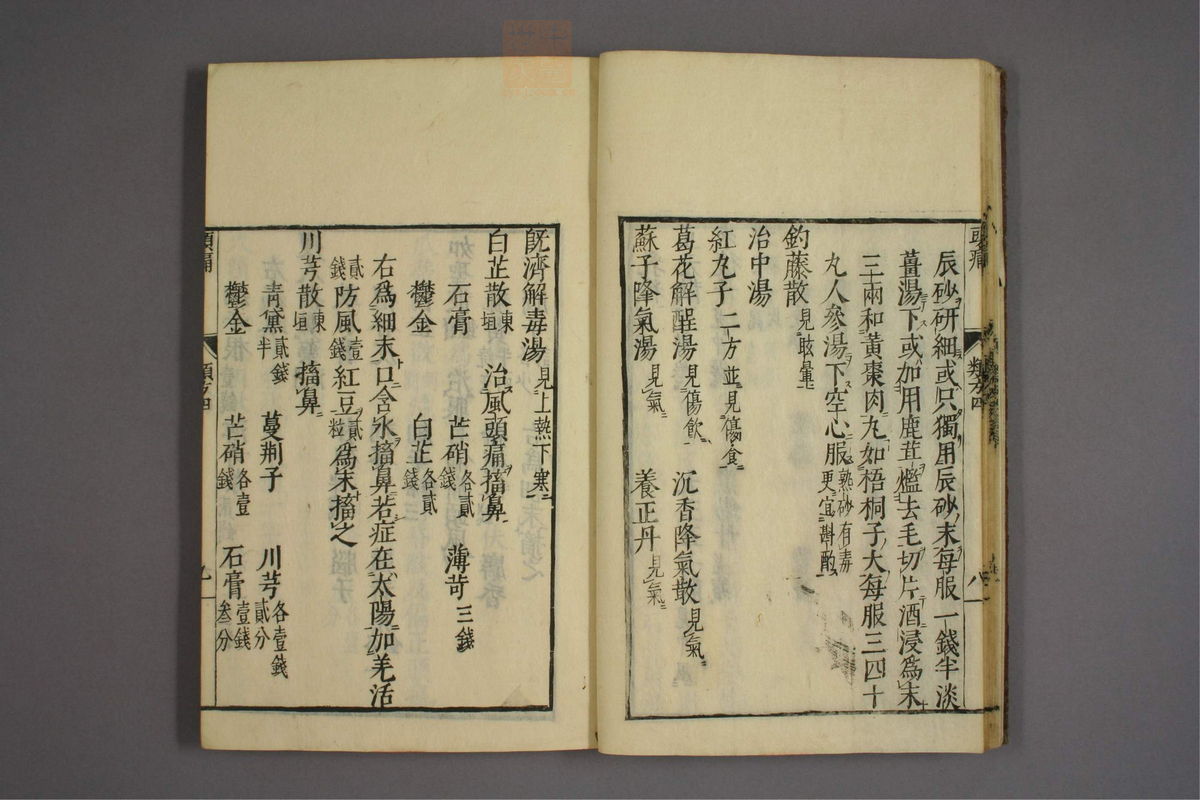 頭痛 類方四 八
辰砂研細或只獨用辰砂末每服一錢半淡
薑湯下或加用鹿茸
去毛切片酒浸為末
三兩和黃棗肉丸如梧桐子大每服三四十
丸人參湯下空心服熟砂有毒更宜斟酌
釣藤散見眩暈
治中湯
紅丸子二方並見傷食
葛花解酲湯見傷飲 沉香降氣散見氣
蘇子降氣湯見氣 養正丹見氣
既濟解毒湯見上熱下寒
白芷散東垣 治風頭痛搐鼻
石膏 芒硝各貳錢 薄苛三錢
鬱金 白芷各貳錢
右為細末口含水搐鼻若症在太陽加羌活
貳錢防風壹錢紅豆貳粒為末搐之
川芎散東垣 搐鼻
青黛貳錢半 蔓荊子 川芎各壹錢貳分
鬱金 芒硝各壹錢 石膏壹錢叁分
頭痛 類方四 九